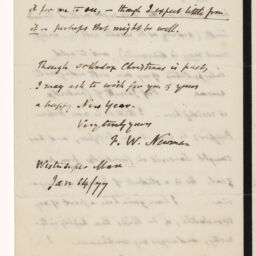 it for me to see, — though I expect little from
it — perhaps that might be well.
Though orthodox Christmas is past,
I may ask to wish for you & yours
a happy New Year.
Very truly yours
F. W. Newman
Weston super Mare
Jan 14/77